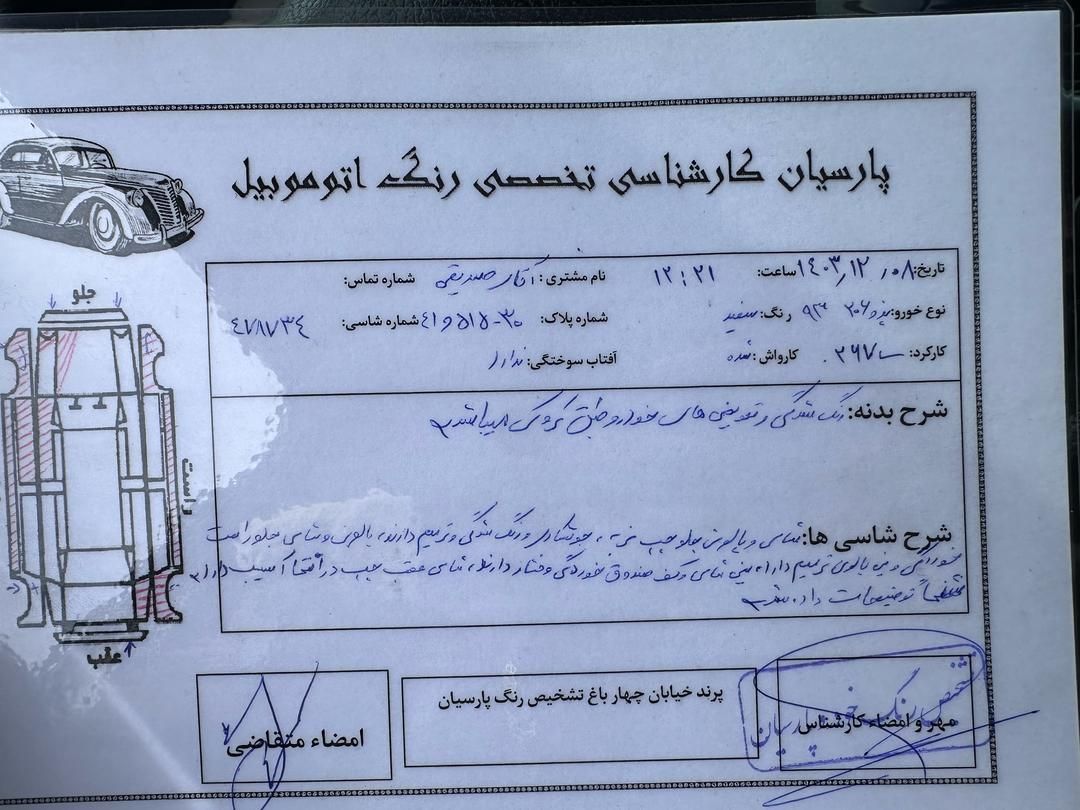 پارسیان کارشناسی تخصصی رنگ اتوموبیل
تاریخ: ۱۴۰۳/۱۲/۰۸ ساعت: ۱۲:۲۱ نام مشتری: آقای صدیقی شماره تماس:
نوع خورو: پژو ۲۰۶ ۹۳ رنگ: سفید شماره پلاک: شماره شاسی: ۴۷۸۷۳۴
کارکرد: کارواش: شده آفتاب سوختگی: ندارد
شرح بدنه: رنگ شدگی و تعویض های خودرو طبق کروکی میباشد
شرح شاسی ها: شاسی و پالونی جلو چپ ضربه، جوشکاری و رنگ شدگی و ترمیم دارند، پالونی و شاسی جلو راست
خوردگی و سینی پالونی ترمیم دارد، سینی شاسی و کف صندوق خوردگی و فشار دارند، شاسی عقب چپ در انتها آسیب دارد
توضیحات داده شد
جلو
راست
عقب
مهر و امضاء کارشناس
تشخیص رنگ
پارسیان
پرند خیابان چهار باغ تشخیص رنگ پارسیان
امضاء متقاضی